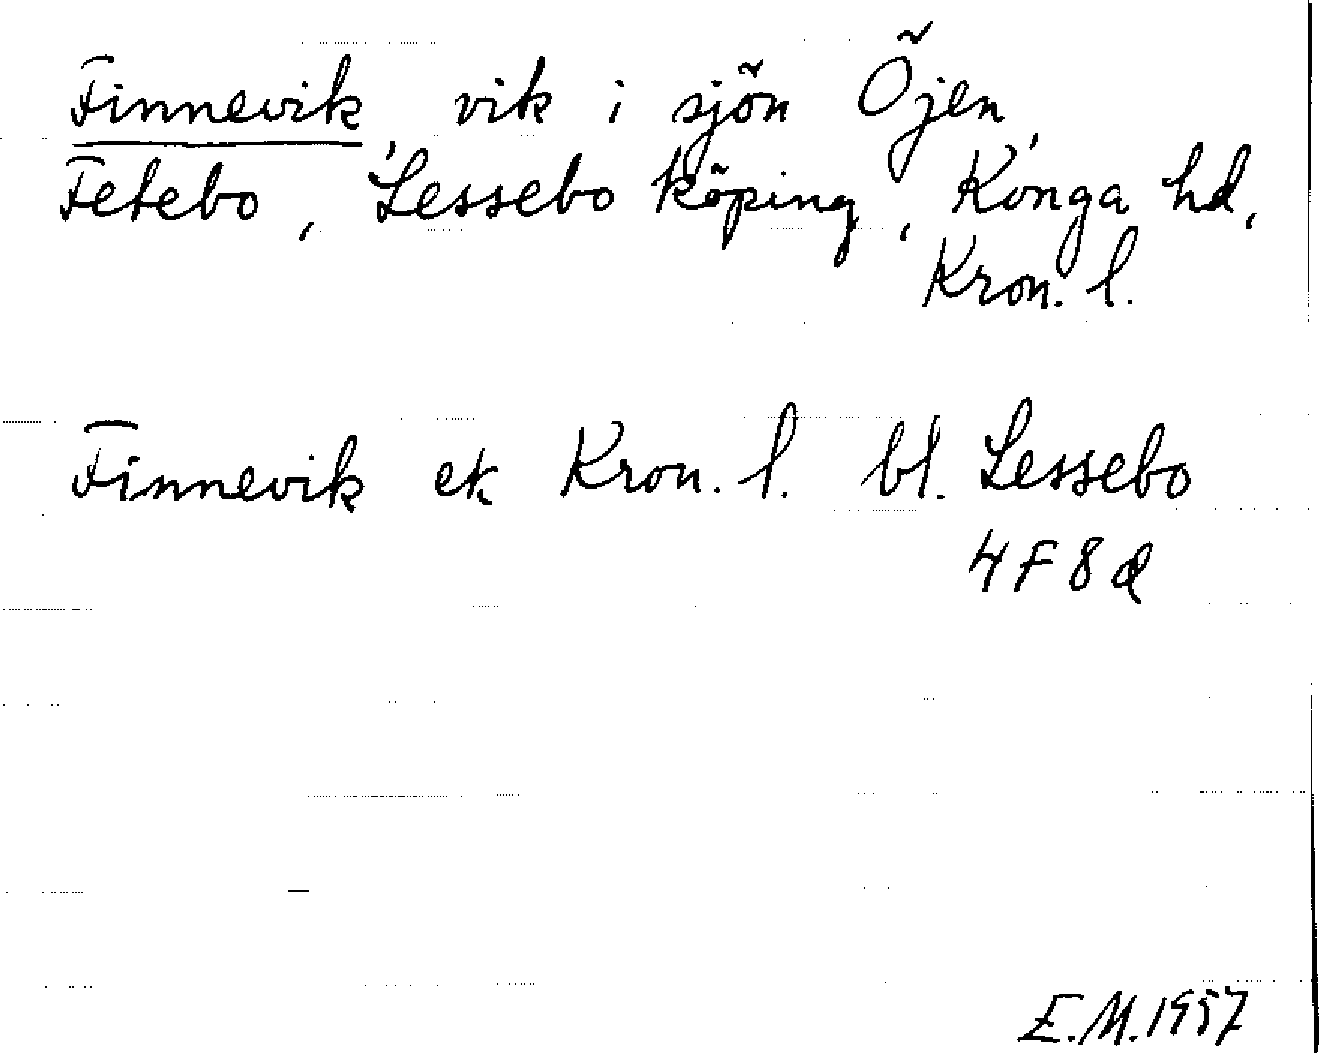 Finnevik, vik i sjön Öjen,
Fetebo, Lessebo köping, Konga hd,
Kron. l.
Finnevik ek Kron. l. bl. Lessebo
4F8d
E.M.1957